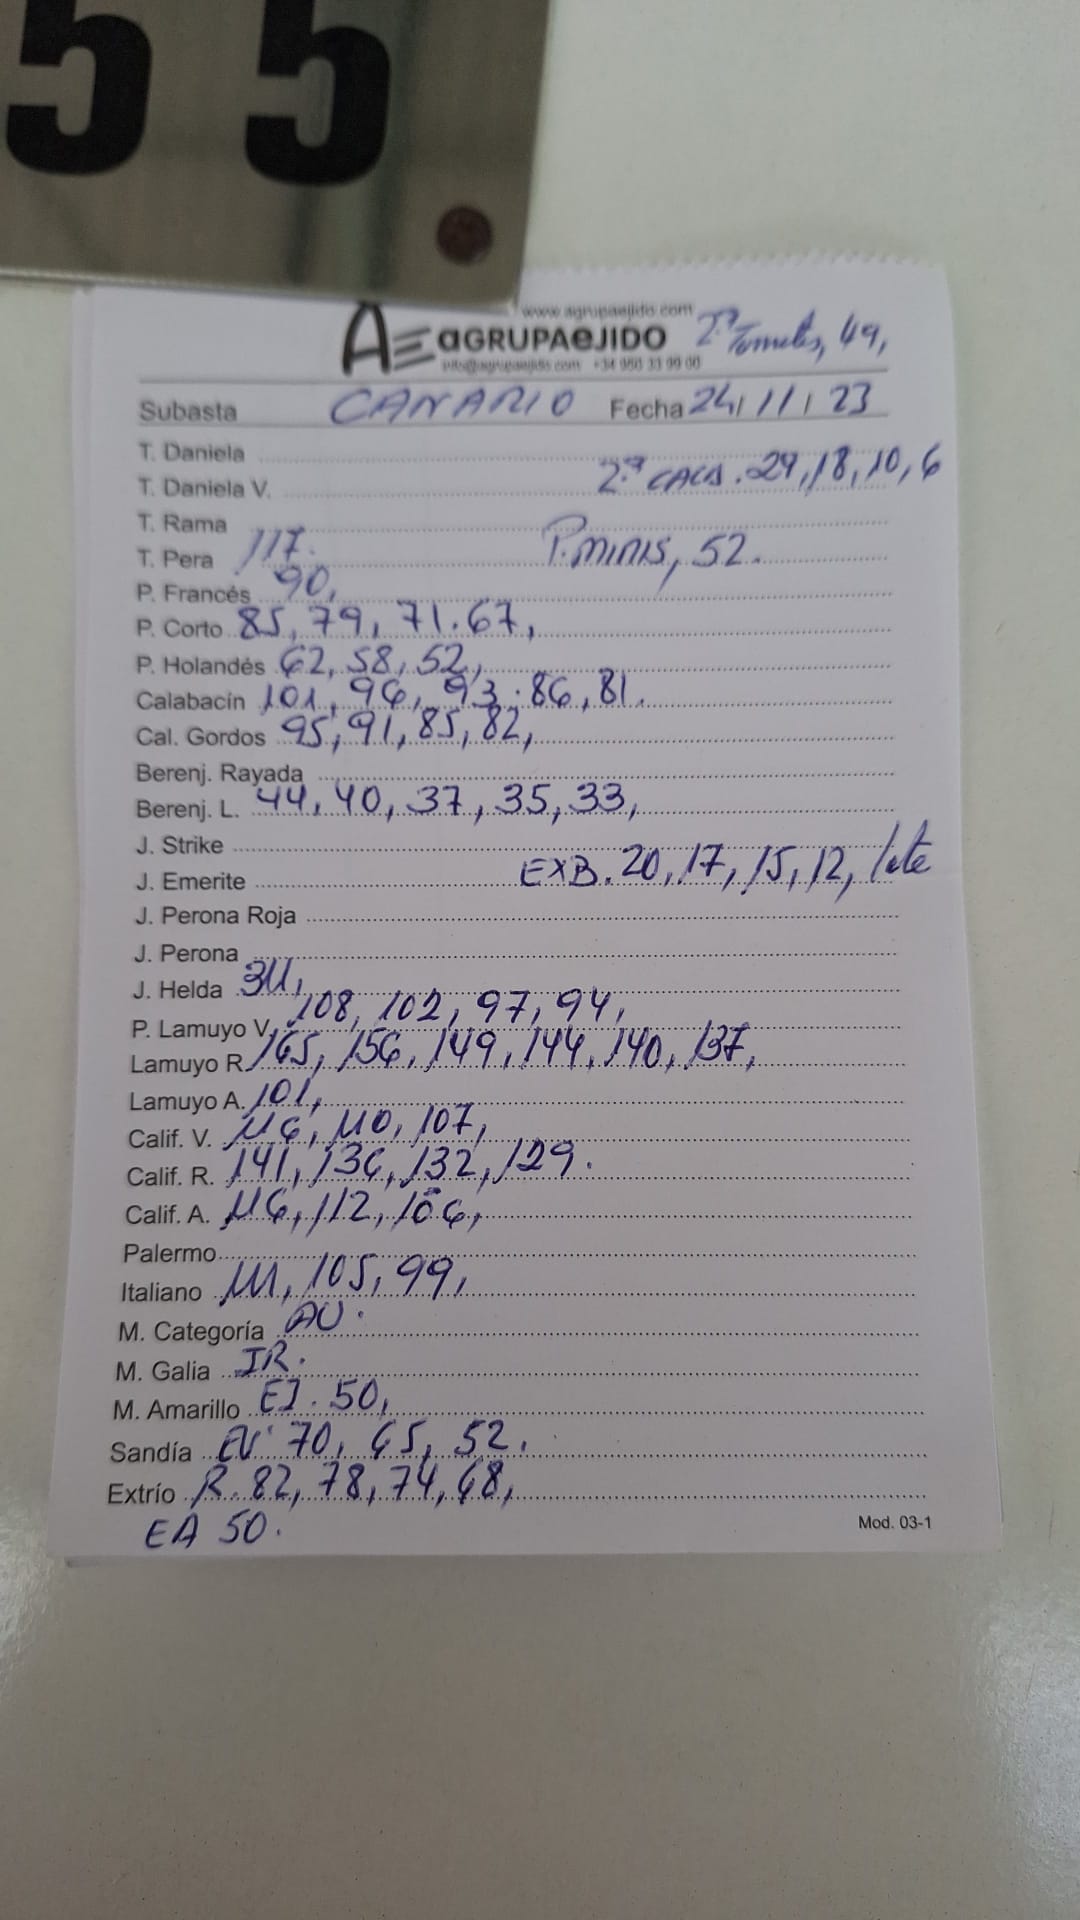 55
www.agrupaejido.com
AGRUPAEJIDO 2ª Tomates, 49,
info@agrupaejido.com +34 950 33 99 00
Subasta CANARIO Fecha 24/11/23
T. Daniela
T. Daniela V. 2ª CALB. 29, 18, 10, 6
T. Rama
T. Pera 117. P. MINIS, 52.
P. Francés 90,
P. Corto 85, 79, 71. 67,
P. Holandés 62, 58, 52,
Calabacín 101, 96, 93. 86, 81.
Cal. Gordos 95, 91, 85, 82,
Berenj. Rayada
Berenj. L. 44, 40, 37, 35, 33,
J. Strike
J. Emerite EXB. 20, 17, 15, 12, lote
J. Perona Roja
J. Perona
J. Helda 311,
P. Lamuyo V. 108, 102, 97, 94,
Lamuyo R. 165, 156, 149, 144, 140, 137,
Lamuyo A. 101,
Calif. V. 116, 110, 107,
Calif. R. 141, 136, 132, 129.
Calif. A. 116, 112, 106,
Palermo
Italiano 111, 105, 99,
M. Categoría AU.
M. Galia IR.
M. Amarillo EI. 50,
Sandía EV. 70, 65, 52.
Extrío R. 82, 78, 74, 68,
EA 50.
Mod. 03-1